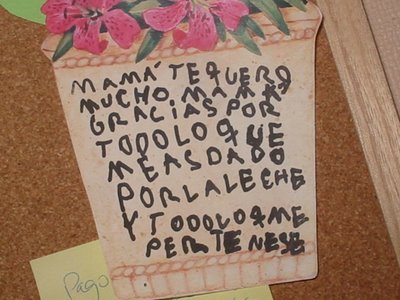 MAMÁ TE QUERO
MUCHO, MAMA,
GRACIAS POR
TODO LO QUE
ME AS DADO
POR LA LECHE
Y TODO LO QME
PERTENESE
Pago